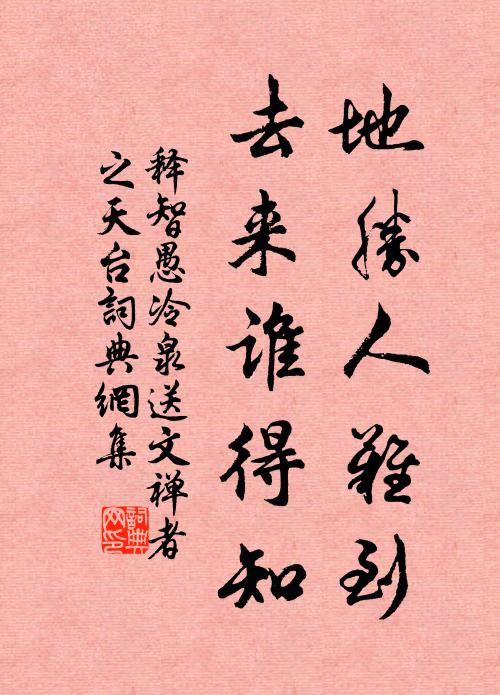 地勝人難到
去来誰得知
释智愚冷泉送文禅者
之天台詞典網集
詞典
网印